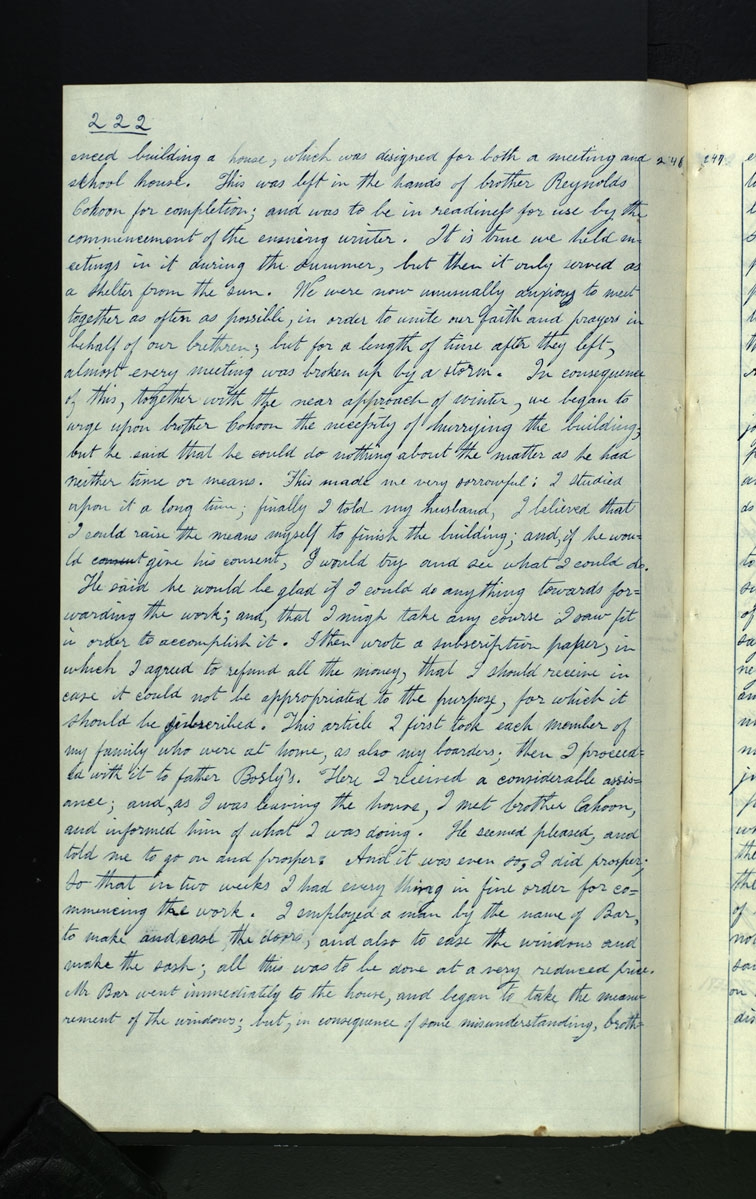 222
enced building a house, which was designed for both a meeting and 246 247
school house. This was left in the hands of brother Reynolds
Cohoon for completion; and was to be in readiness for use by the
commencement of the ensuing winter. It is true we held me-
eetings in it during the summer, but then it only served as
a shelter from the sun. We were now unusually anxious to meet
together as often as possible, in order to unite our faith and prayers in
behalf of our brethren; but for a length of time after they left,
almost every meeting was broken up by a storm. In consequence
of this, together with the near approach of winter, we began to
urge upon brother Cohoon the necessity of hurrying the building;
but he said that he could do nothing about the matter as he had
neither time or means. This made me very sorrowful: I studied
upon it a long time; finally I told my husband, I believed that
I could raise the means myself to finish the building; and, if he wou-
ld consent give his consent, I would try and see what I could do.
He said he would be glad if I could do anything towards for=
warding the work; and, that I migh take any course I saw fit
in order to accomplish it. I then wrote a subscription paper, in
which I agreed to refund all the money, that I should receive in
case it could not be appropriated to the purpose, for which it
should be subscribed. This article I first took each member of
my family who were at home, as also my boarders; then I proceed=
ed with it to father Bosly's. Here I received a considerable assis=
ance; and, as I was leaving the house, I met brother Cahoon,
and informed him of what I was doing. He seemed pleased, and
told me to go on and prosper: And it was even so, I did prosper;
So that in two weeks I had every thing in fine order for co=
mmencing the work. I employed a man by the name of Bar,
to make and case the doors, and also to case the windows and
make the sash; all this was to be done at a very reduced price.
Mr Bar went immediately to the house, and began to take the measu-
rement of the windows; but, in consequence of some misunderstanding, broth=